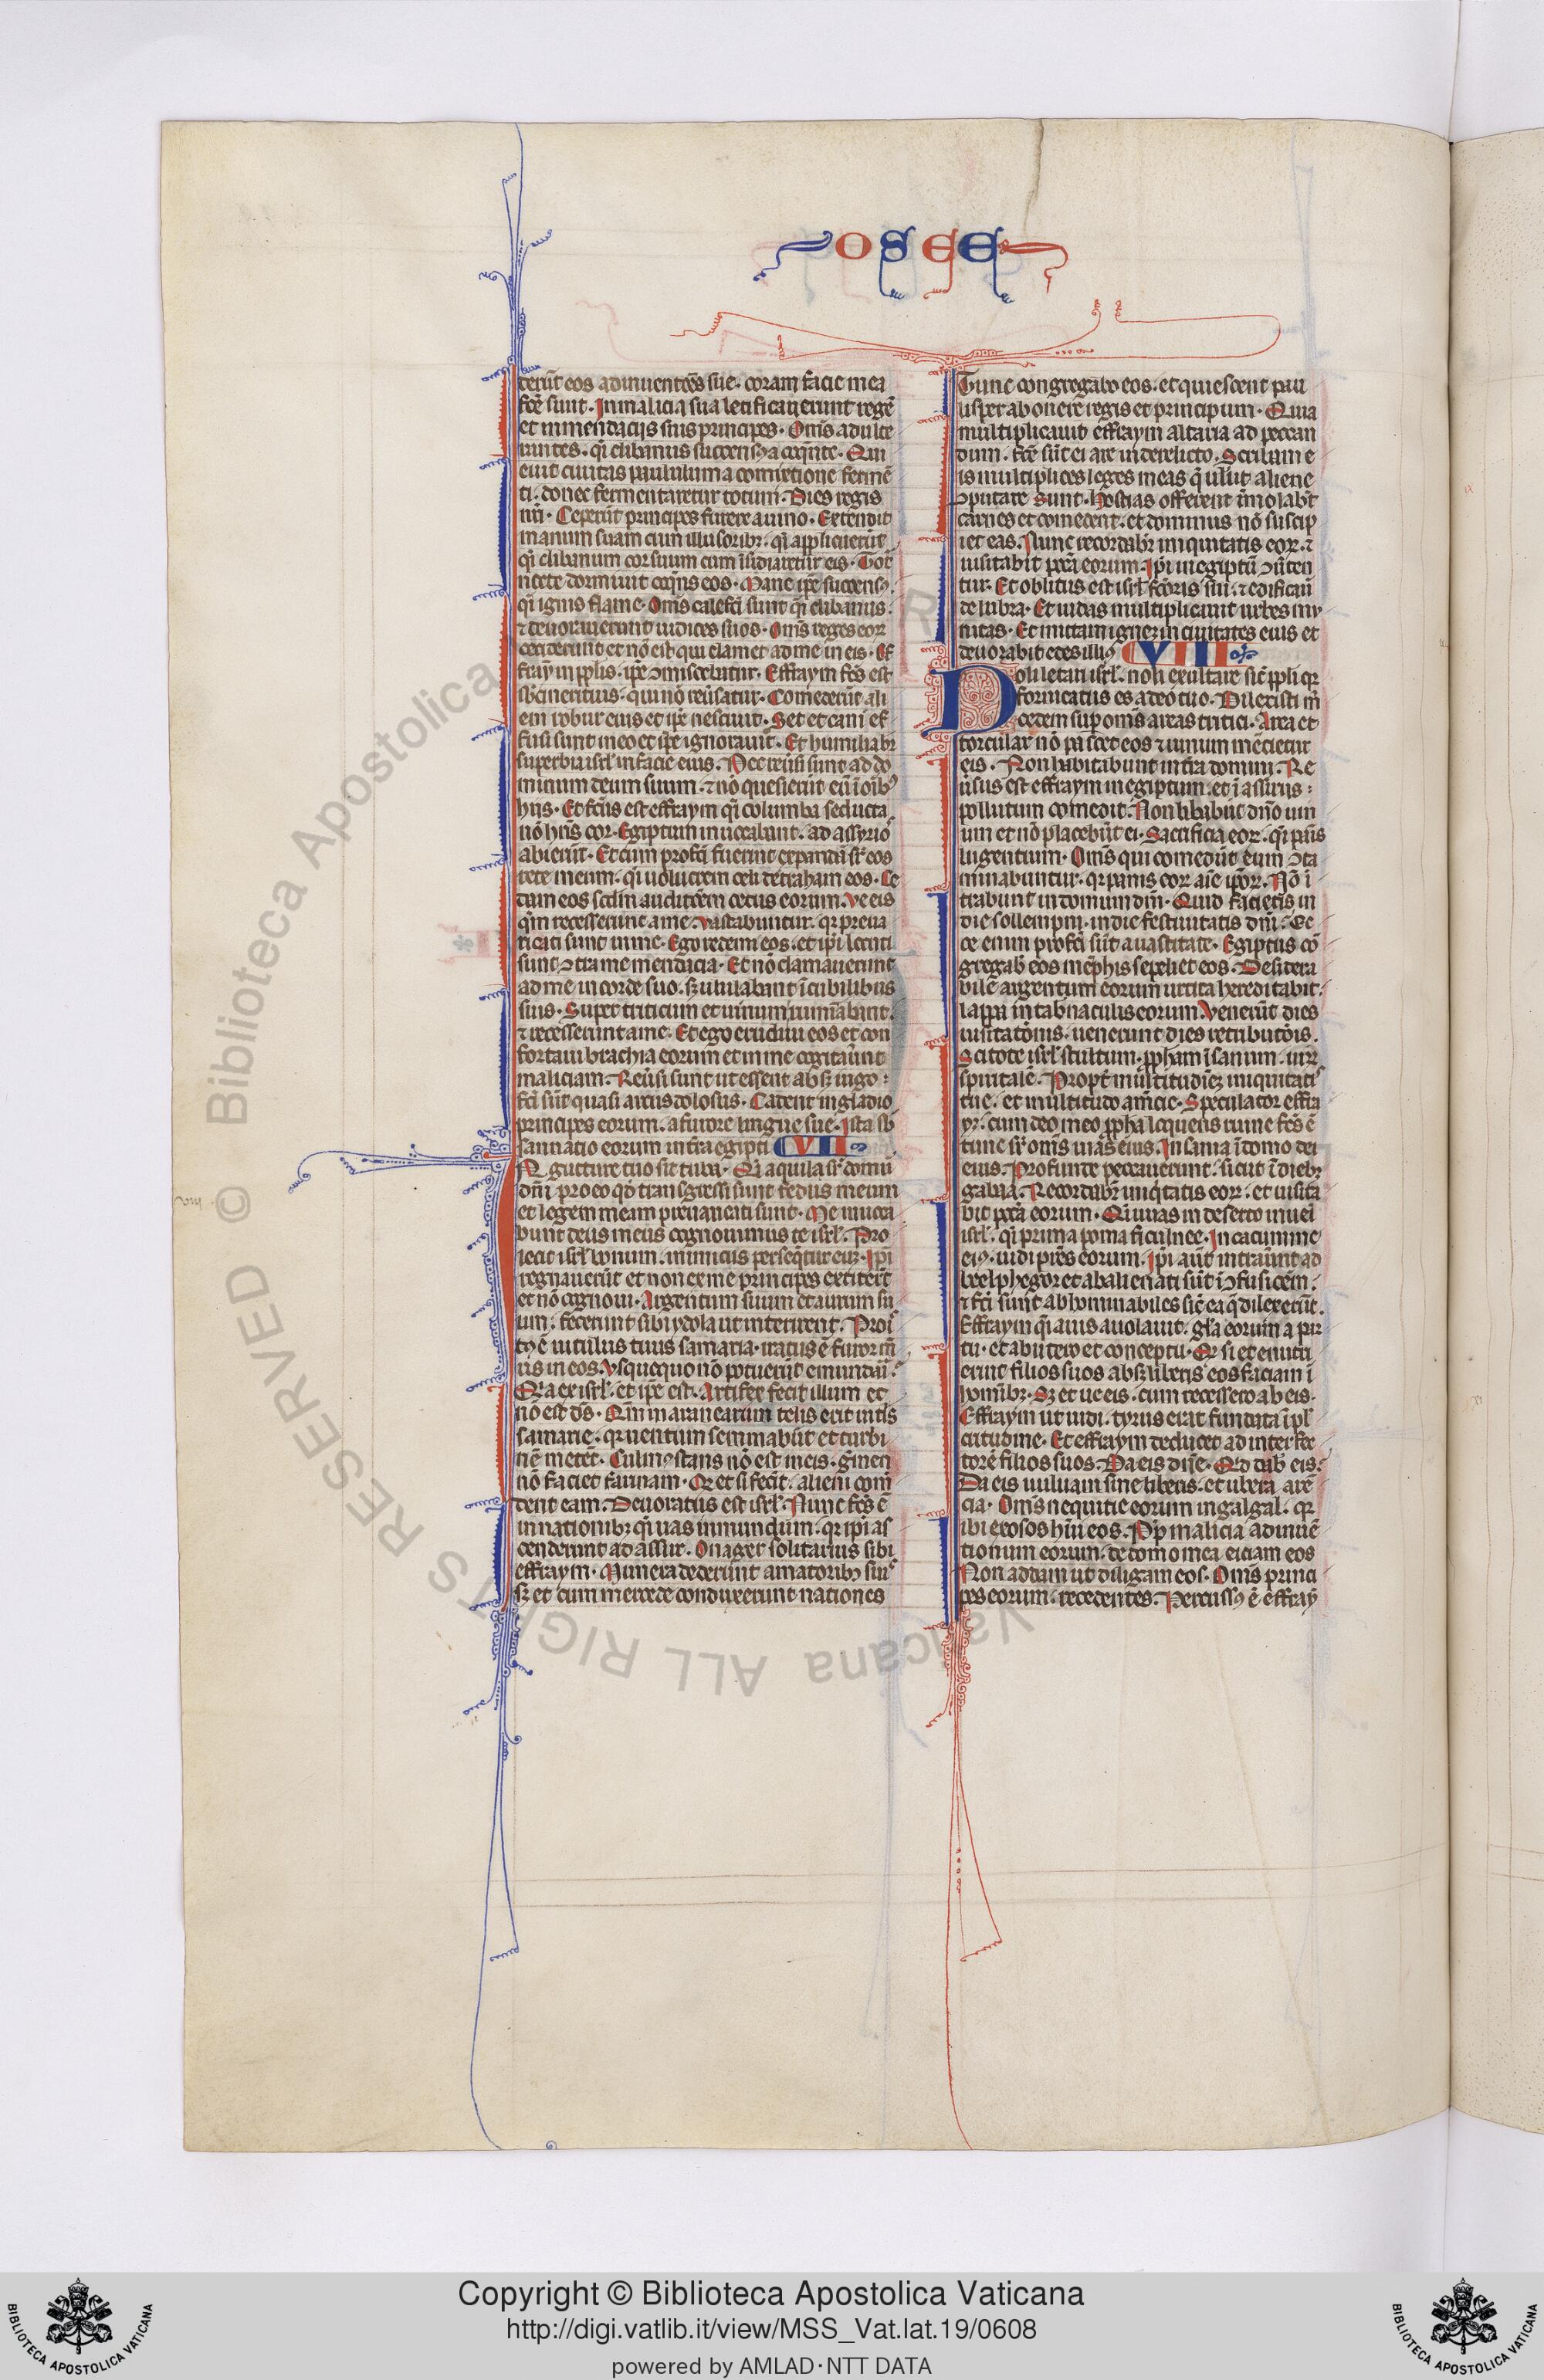 OSEE
derūt eos adinuentōēs sue. coram facie mea
fcē sunt. In malicia sua letificauerunt regē
et in mendacijs suis principes. Om̄s adulte
rantes. q̄i clibanus succensꝰ a coq̄nte. Qui
euit ciuitas paululum a comixtione fermē
ti. donec fermentaretur totum. Dies regis
nr̄i. Ceperūt principes furere a uino. Extendit
manum suam cum illusoribꝫ. q̄i applicuerūt
q̄i clibanum cor suum cum īsidiaretur eis. Tota
nocte dormiuit coq̄ns eos. Mane ip̄e succensꝰ
q̄i ignis flame. Om̄s calefc̄i sunt q̄i clibanus.
⁊ deuorauerunt iudices suos. Om̄s reges eoꝝ
ceciderunt et nō est qui clamet ad me in eis. Ef
fraym in pplis. ip̄e ꝯmiscebatur. Effraym fc̄s est
sbcinericius. qui nō reūsatur. Comederūt ali
eni robur eius et ip̄e nesciuit. Set et cani ef
fusi sunt in eo et ip̄e ignorauit. Et humiliabr̄
superbia isrl̄ in facie eius. Nec reūsi sunt ad do
minum deum suum. ⁊ nō quesierūt eū ī oībꝰ
hijs. Et fc̄us est effraym q̄i columba seducta
nō hn̄s cor. Egiptum inuocabant. ad assyrios
abierūt. Et cum profc̄i fuerint expandā sr̄ eos
rete meum. q̄i uolucrem celi detraham eos. Ce
dam eos scd̄m auditōem cetus eorum. Ve eis
qm̄ recesserunt a me. Vastabuntur. qꝛ preua
ricati sunt in me. Ego redemi eos. et ip̄i locuti
sunt ꝯtra me mendacia. Et nō clamauerunt
ad me in corde suo. sꝫ ululabant ī cubilibus
suis. Super triticum et uinum ruminabant.
⁊ recesserunt a me. Et ego erudiui eos et con
fortaui brachia eorum et in me cogitauūt
maliciam. Reūsi sunt ut essent absꝫ iugo.
fc̄i sūt quasi arcus dolosus. Cadent in gladio
principes eorum. a furore lingue sue. Ista sb
sannatio eorum in terra egipti. VII
In gutture tuo sit tuba. Q̄i aquila sr̄ domū
dn̄i pro eo qd̄ transgressi sunt fedus meum
et legem meam preuaricati sunt. Me inuoca
bunt deus meus cognouimus te isrl̄. Pro
iecit isrl̄ bonum. inimicus perseq̄tur eū. Ip̄i
regnauerūt et non ex me principes extiterūt
et nō cognoui. Argentum suum et aurum su
um. fecerunt sibi ydola ut interirent. Proi
ctꝰ ē uitulus tuus samaria. iratus ē furor m̄
us in eos. Vsquequo nō poterūt emundari.
Q̄a ex isrl̄. et ip̄e est. Artifex fecit illum et
nō est ds̄. Qm̄ in aranearum telis erit uitls̄
samarie. qꝛ uentum seminabūt et turbi
nē metēt. Culmꝰ stans nō est in eis. germen
nō faciet farinam. Qꝛ et si fecit. alieni come
dent eam. Deuoratus est isrl̄. Nunc fc̄s ē
in nationibꝫ q̄i uas inmundum. qꝛ ip̄i as
cenderunt ad assur. Onager solitarius sibi
effraym. Munera dederunt amatoribꝫ suis
sꝫ et cum mercede conduxerunt nationes
Tunc congregabo eos. et quiescent pau
lisper ab onere regis et principum. Quia
multiplicauit effraym altaria ad peccan
dum. fc̄e sūt ei are in derelicto. Scribam e
is multiplices leges meas q̄ uelut aliene
ꝯputate sunt. Hostias offerent īmolabūt
carnes et comedent. et dominus nō suscip
iet eas. Nunc recordabr̄ iniquitatis eoꝝ. ⁊
uisitabit pccā eorum. Ip̄i in egiptū ꝯūten
tur. Et oblitus est isrl̄ fc̄oris sui. ⁊ edificauit
delubra. Et iudas multiplicauit urbes mu
nitas. Et mittam ignem in ciuitates eius et
deuorabit edes illiꝰ VIII
Noli letari isrl̄. noli exultare sic̄ ppli qꝛ
fornicatus es a deo tuo. Dilexisti m̄
cedem sup om̄s areas tritici. Area et
torcular nō pascet eos ⁊ uinum mētietur
eis. Non habitabunt in terra domini. Re
ūsus est effraym in egiptum. et ī assirijs
pollutum comedit. Non libabūt dn̄o uin
um et nō placebūt ei. Sacrificia eoꝝ. q̄i panis
lugentium. Om̄s qui comedūt eum ꝯta
minabuntur. qꝛ panis eoꝝ aīe ip̄oꝝ. Nō ī
trabunt in domum dn̄i. Quid facietis in
die sollempni. in die festiuitatis dn̄i. Ec
ce enim profc̄i sūt a uastitate. Egiptus cō
gregabit eos mēphis sepeliet eos. Desidera
bile argentum eorum urtica hereditabit.
lappa in tab̄naculis eorum. Venerūt dies
uisitatōnis. uenerunt dies retributōis.
Scitote isrl̄ stultum. ꝓpham īsanum. uirū
spiritalē. Propt̄ multitudinē iniquitatis
tue. et multitudo am̄cie. Speculator effra
ym. cum deo meo ꝓpha laqueus ruine fc̄s ē
tunc sr̄ om̄s uias eius. Insania ī domo dei
eius. Profunde peccauerunt. sicut ī diebꝫ
gabaa. Recordabr̄ iniq̄tatis eoꝝ. et uisita
bit pccā eorum. Q̄i uuas in deserto inueī
isrl̄. q̄i prima poma ficulnee. In cacumine
eiꝰ. uidi pr̄es eorum. Ip̄i aūt intrauūt ad
beelphegor et abalienati sūt ī ꝯfusiōem.
⁊ fc̄i sunt abhominabiles sic̄ ea q̄ dilexerūt.
Effraym q̄i auis auolauit. glā eorum a par
tu. et ab utero et conceptu. Qꝛ si et enutri
erint filios suos absꝫ liberis eos faciam ī
hominibꝫ. Sꝫ et ue eis. cum recessero ab eis.
Effraym ut uidi. tyrus erat fundata ī pl̄
critudine. Et effraym deducet ad interfec
torē filios suos. Da eis dn̄e. Qd̄ dab̄ eis.
Da eis uuluam sine liberis. et ubera arē
cia. Om̄s nequitie eorum in galgal. qꝛ
ibi exosos hūi eos. Ꝓp̄ malicia adinuē
tionum eorum. de domo mea eiciam eos
Non addam ut diligam eos. Om̄s princi
pes eorum. recedentes. Percussꝰ ē effraym
Copyright © Biblioteca Apostolica Vaticana
http://digi.vatlib.it/view/MSS_Vat.lat.19/0608
powered by AMLAD·NTT DATA
BIBLIOTECA APOSTOLICA VATICANA
BIBLIOTECA APOSTOLICA VATICANA
© Biblioteca Apostolica Vaticana ALL RIGHTS RESERVED